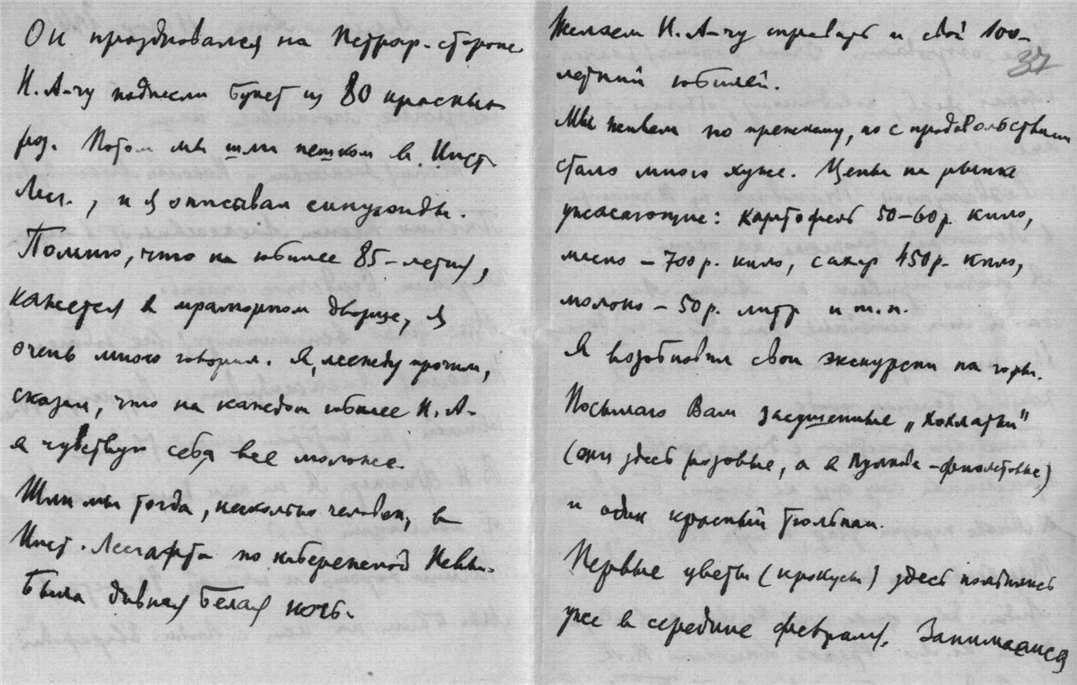 Он праздновался на Петрогр. стороне
Н. А-чу поднесли букет из 80 красных
роз. Потом мы шли пешком в Инст.
Лесг., и я описывал синусоиды.
Помню, что на юбилее 85-летия,
кажется в мраморном дворце, я
очень много говорил. Я, между прочим,
сказал, что на каждом юбилее Н. А-
я чувствую себя все моложе.
Шли мы тогда, несколько человек, в
Инст. Лесгафта по набережной Невы.
Была дивная белая ночь.
37
Желаем Н. А-чу справить и свой 100-
летний юбилей.
Мы живем по прежнему, но с продовольствием
стало много хуже. Цены на рынке
ужасающие: картофель 50-60 р. кило,
мясо - 700 р. кило, сахар 450 р. кило,
молоко - 50 р. литр и т.п.
Я возобновил свои экскурсии на горы.
Посылаю Вам засушенные „Хохлатки"
(они здесь розовые, а в Пулкове - фиолетовые)
и один красный тюльпан.
Первые цветы (крокусы) здесь появились
уже в середине февраля. Занимаемся